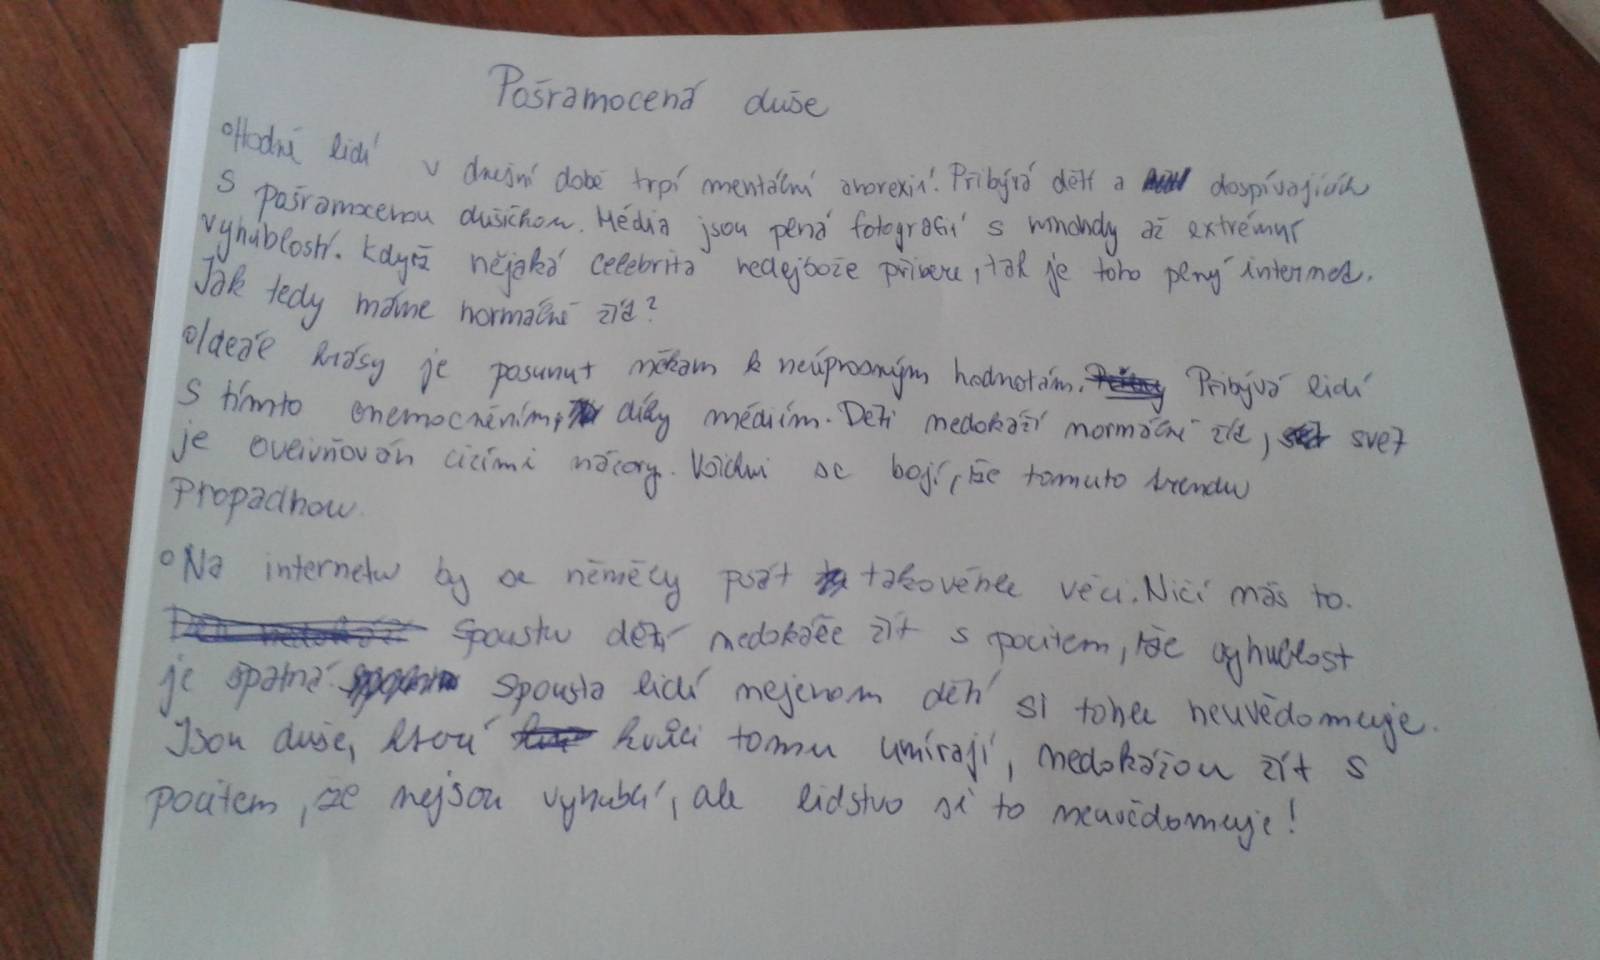 Pošramocená duše
Hodně lidí v dnešní době trpí mentální anorexií. Přibývá dětí a dospívajících
s pošramocenou dušičkou. Média jsou plná fotografií s mnohdy až extrémní
vyhublostí. Když nějaká celebrita nedejbože přibere, tak je toho plný internet.
Jak tedy máme normálně žít?
Ideál krásy je posunut někam k neúprosným hodnotám. Přibývá lidí
s tímto onemocněním, díky médiím. Děti nedokáží normálně žít, svět
je ovlivňován cizími názory. Všichni se bojí, že tomuto trendu
propadnou.
Na internetu by se neměly psát takovéhle věci. Ničí nás to.
Spoustu dětí nedokáže žít s pocitem, že vyhublost
je špatná. Spousta lidí nejenom dětí si tohle neuvědomuje.
Jsou duše, které kvůli tomu umírají, nedokážou žít s
pocitem, že nejsou vyhublí, ale lidstvo si to neuvědomuje!